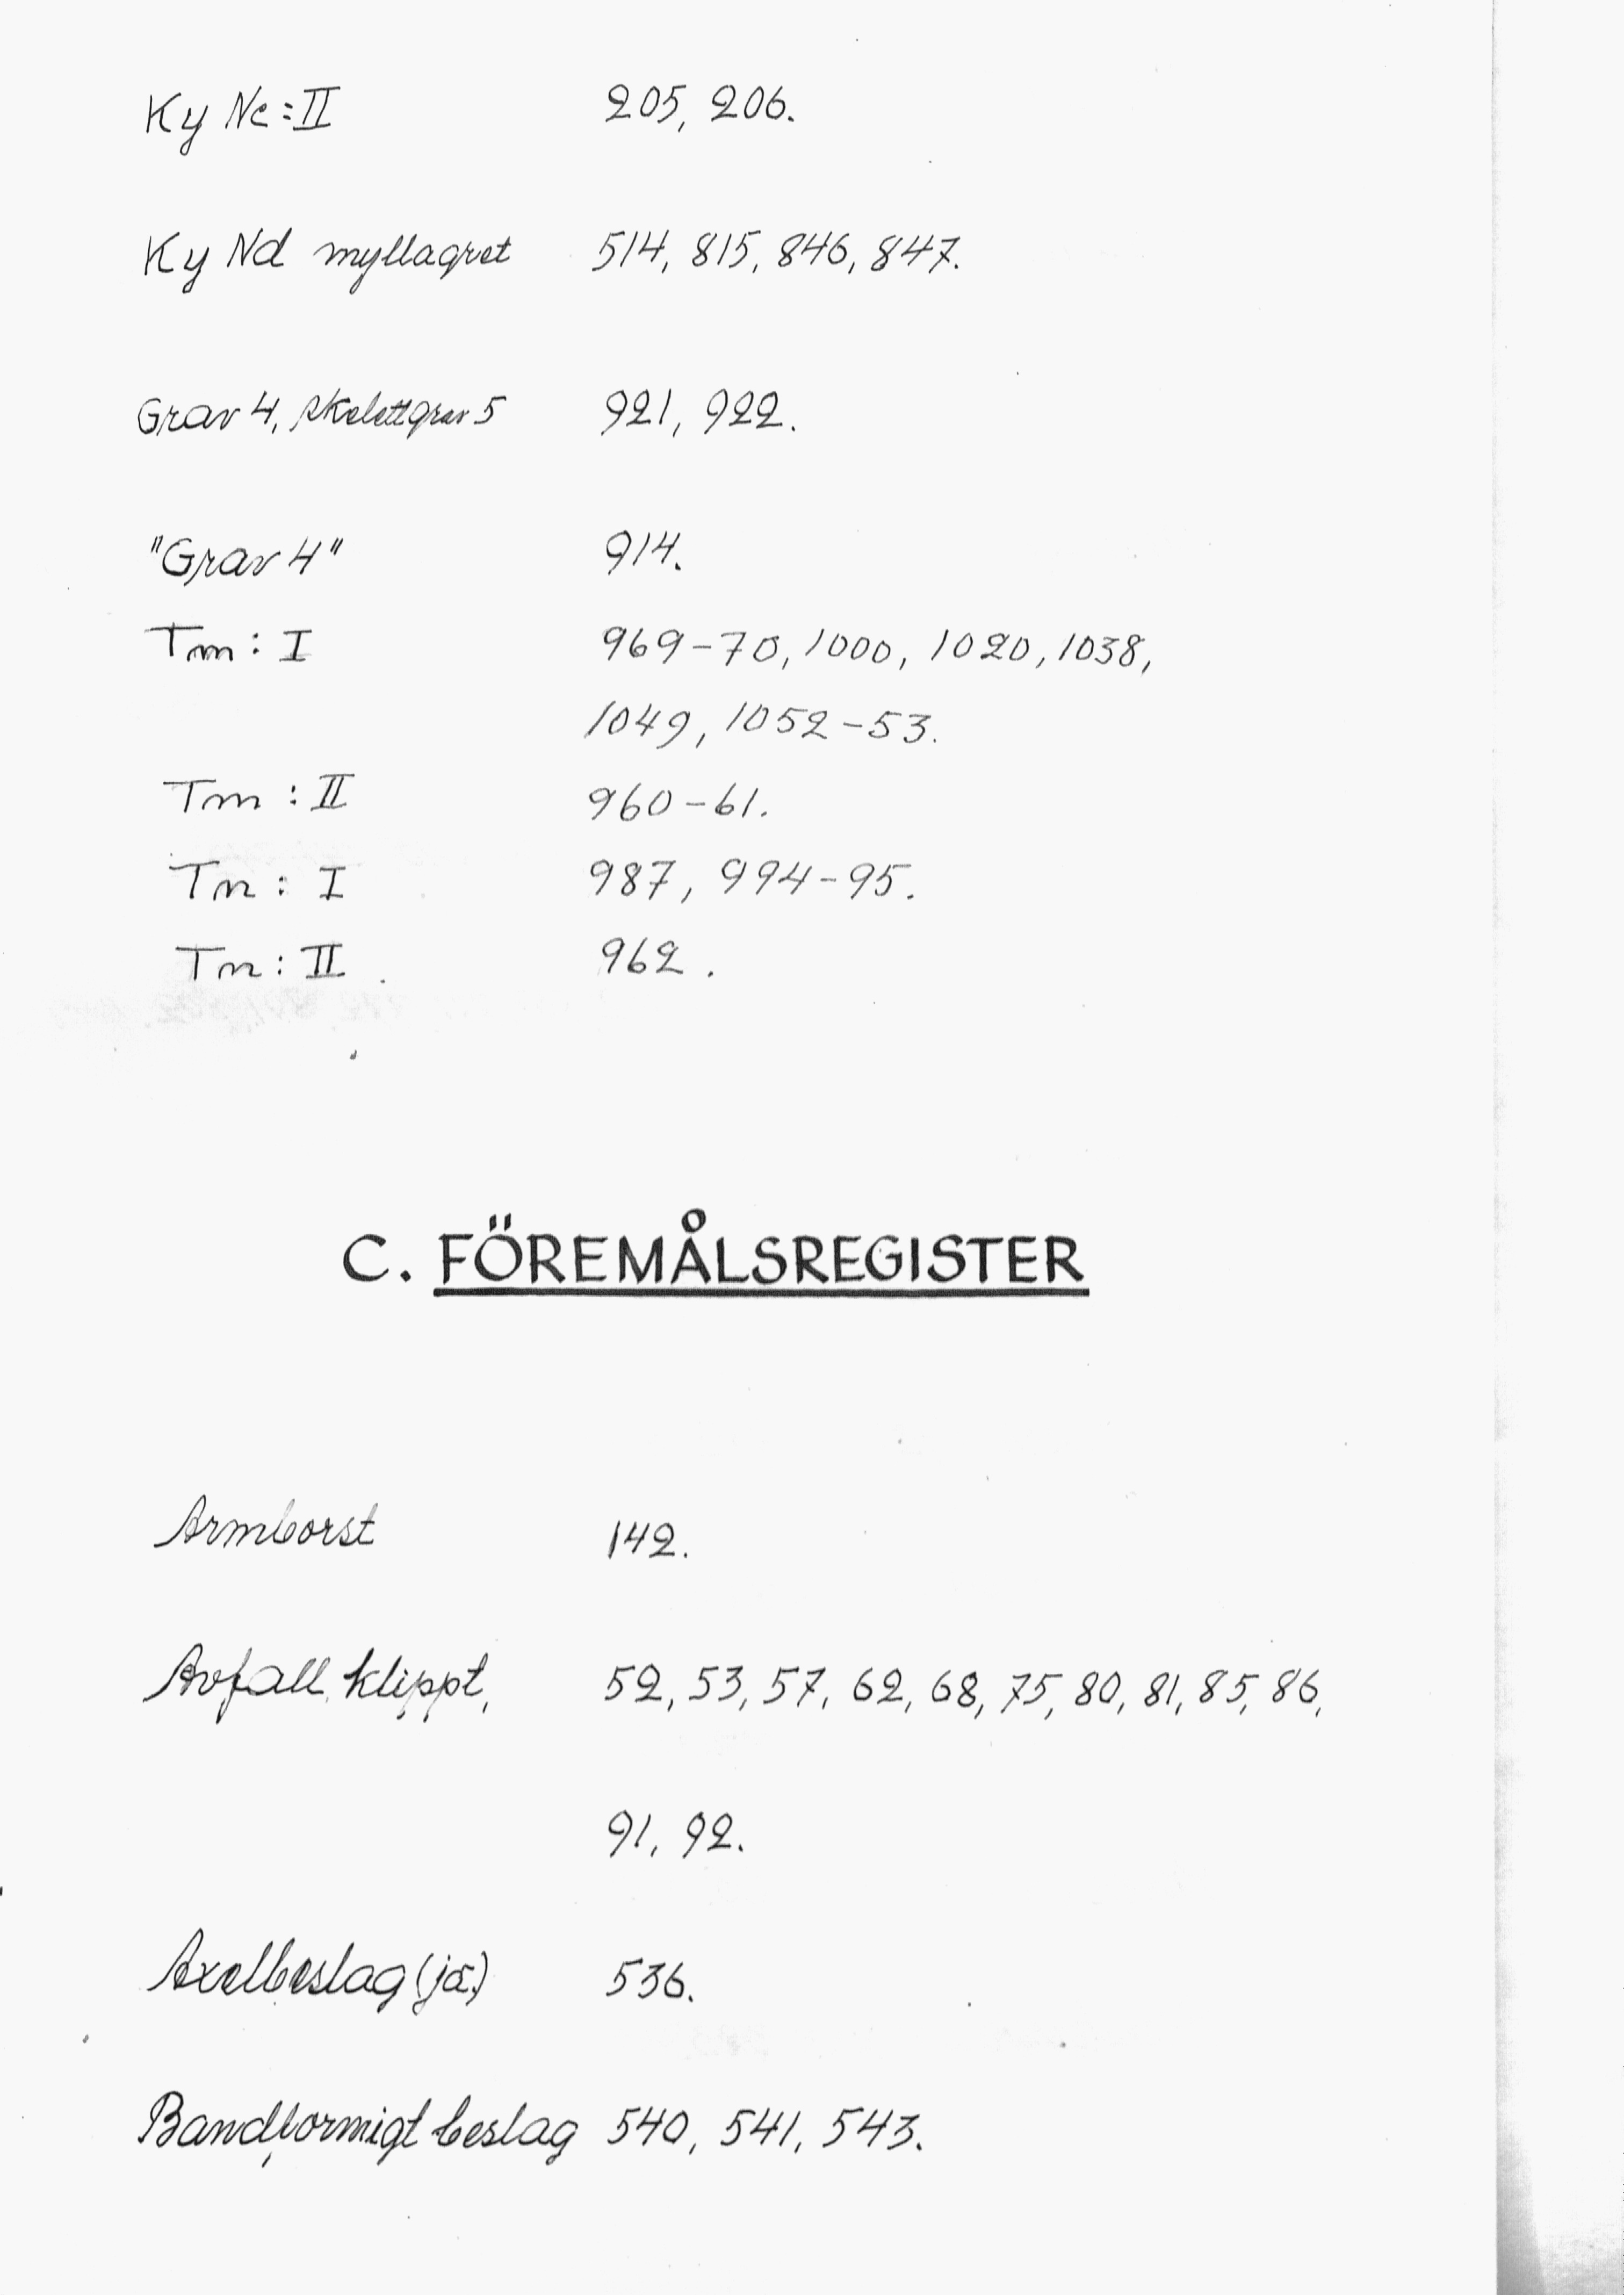 Ky Nc:II 205, 206.
Ky Nd myllagret 514, 815, 846, 847.
Grav 4, skelettgrav 5 921, 922.
"Grav 4" 914.
Tm: I 969-70, 1000, 1020, 1038,
1049, 1052-53.
Tm: II 960-61.
Tn: I 987, 994-95.
Tn: II 962.
C. FÖREMÅLSREGISTER
Armborst 142.
Avfall, klippt, 52, 53, 57, 62, 68, 75, 80, 81, 85, 86,
91, 92.
Axelbeslag (jä.) 536.
Bandformigt beslag 540, 541, 543.